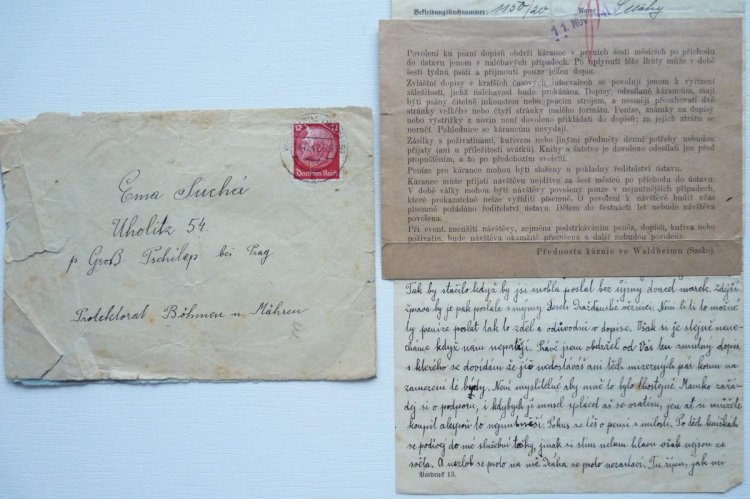 Ema Suchá
Uholitz 54
p Groß Tschilep bei Prag
Protektorat Böhmen u Mähren
Deutsches Reich
Bekleidungsbuchnummer: 1150/20 Name: Suchý
11. NOV. 1941
Povolení ku psaní dopisů obdrží káranec v prvních šesti měsících po příchodu
do ústavu jenom v naléhavých případech. Po uplynutí této lhůty může v době
šesti týdnů psáti a přijmouti pouze jeden dopis.
Zvláštní dopisy v kratších časových intervalech se povolují jenom k vyřízení
záležitostí, jichž naléhavost bude prokázána. Dopisy, odesílané kárancům, mají
býti psány čitelně inkoustem nebo psacím strojem, a nesmějí přesahovati dvě
stránky velkého nebo čtyři stránky malého formátu. Peníze, známky na dopisy
nebo výstřižky z novin není dovoleno přikládati do dopisů; za jejich ztrátu se
neručí. Pohlednice se kárancům nevydají.
Zásilky s poživatinami, kuřivem nebo jinými předměty denní potřeby nebudou
přijaty (ani u příležitosti svátků). Knihy a šatstvo je dovoleno odesílati jen před
propuštěním, a to po předchozím svolení.
Peníze pro kárance mohou býti složeny u pokladny ředitelství ústavu.
Káranec může přijati návštěvu nejdříve za šest měsíců po příchodu do ústavu.
V době války mohou býti návštěvy povoleny pouze v nejnutnějších případech,
které prokazatelně nelze vyříditi písemně. O povolení k návštěvě budiž včas
písemně požádáno ředitelství ústavu. Dětem do šestnácti let nebude návštěva
povolena.
Při event. zneužití návštěvy, zejména podstrkáváním peněz, dopisů, kuřiva nebo
poživatin, bude návštěva okamžitě přerušena a další nebudou povoleny.
Přednosta káznice ve Waldheimu (Sasko).
Tak by stačilo když by jsi mohla poslat bez újmy dvacet marek, zdejší
zpráva by je pak poslala s mými do Drážďanské věznici. Není li ti to možné
ty peníze poslat tak to zděl a odůvodni v dopise. Však si je stejně nene-
cháme když nám nepatří. Právě jsem obdržel od Vás ten smutný dopis,
s kterého se dovídám že již nedostáváš ani těch mizerných pár korun na
zamezení té bídy. Není myslitelné aby mně to bylo lhostejné. Mamko zažá-
dej si o podporu, i kdybych ji musel splácet až se vrátím, jen ať si můžete
koupit alespoň to nejnutnější. Pokus se též o penzi s milosti. Po těch kouskách
se podívej do mé služební tašky, jinak si stím nelam hlavu však nejsou ze
světa. A nezlob se proto na mě. Dráha se proto nezastaví. Tu říjnu, jak mi
Vordruck 13.